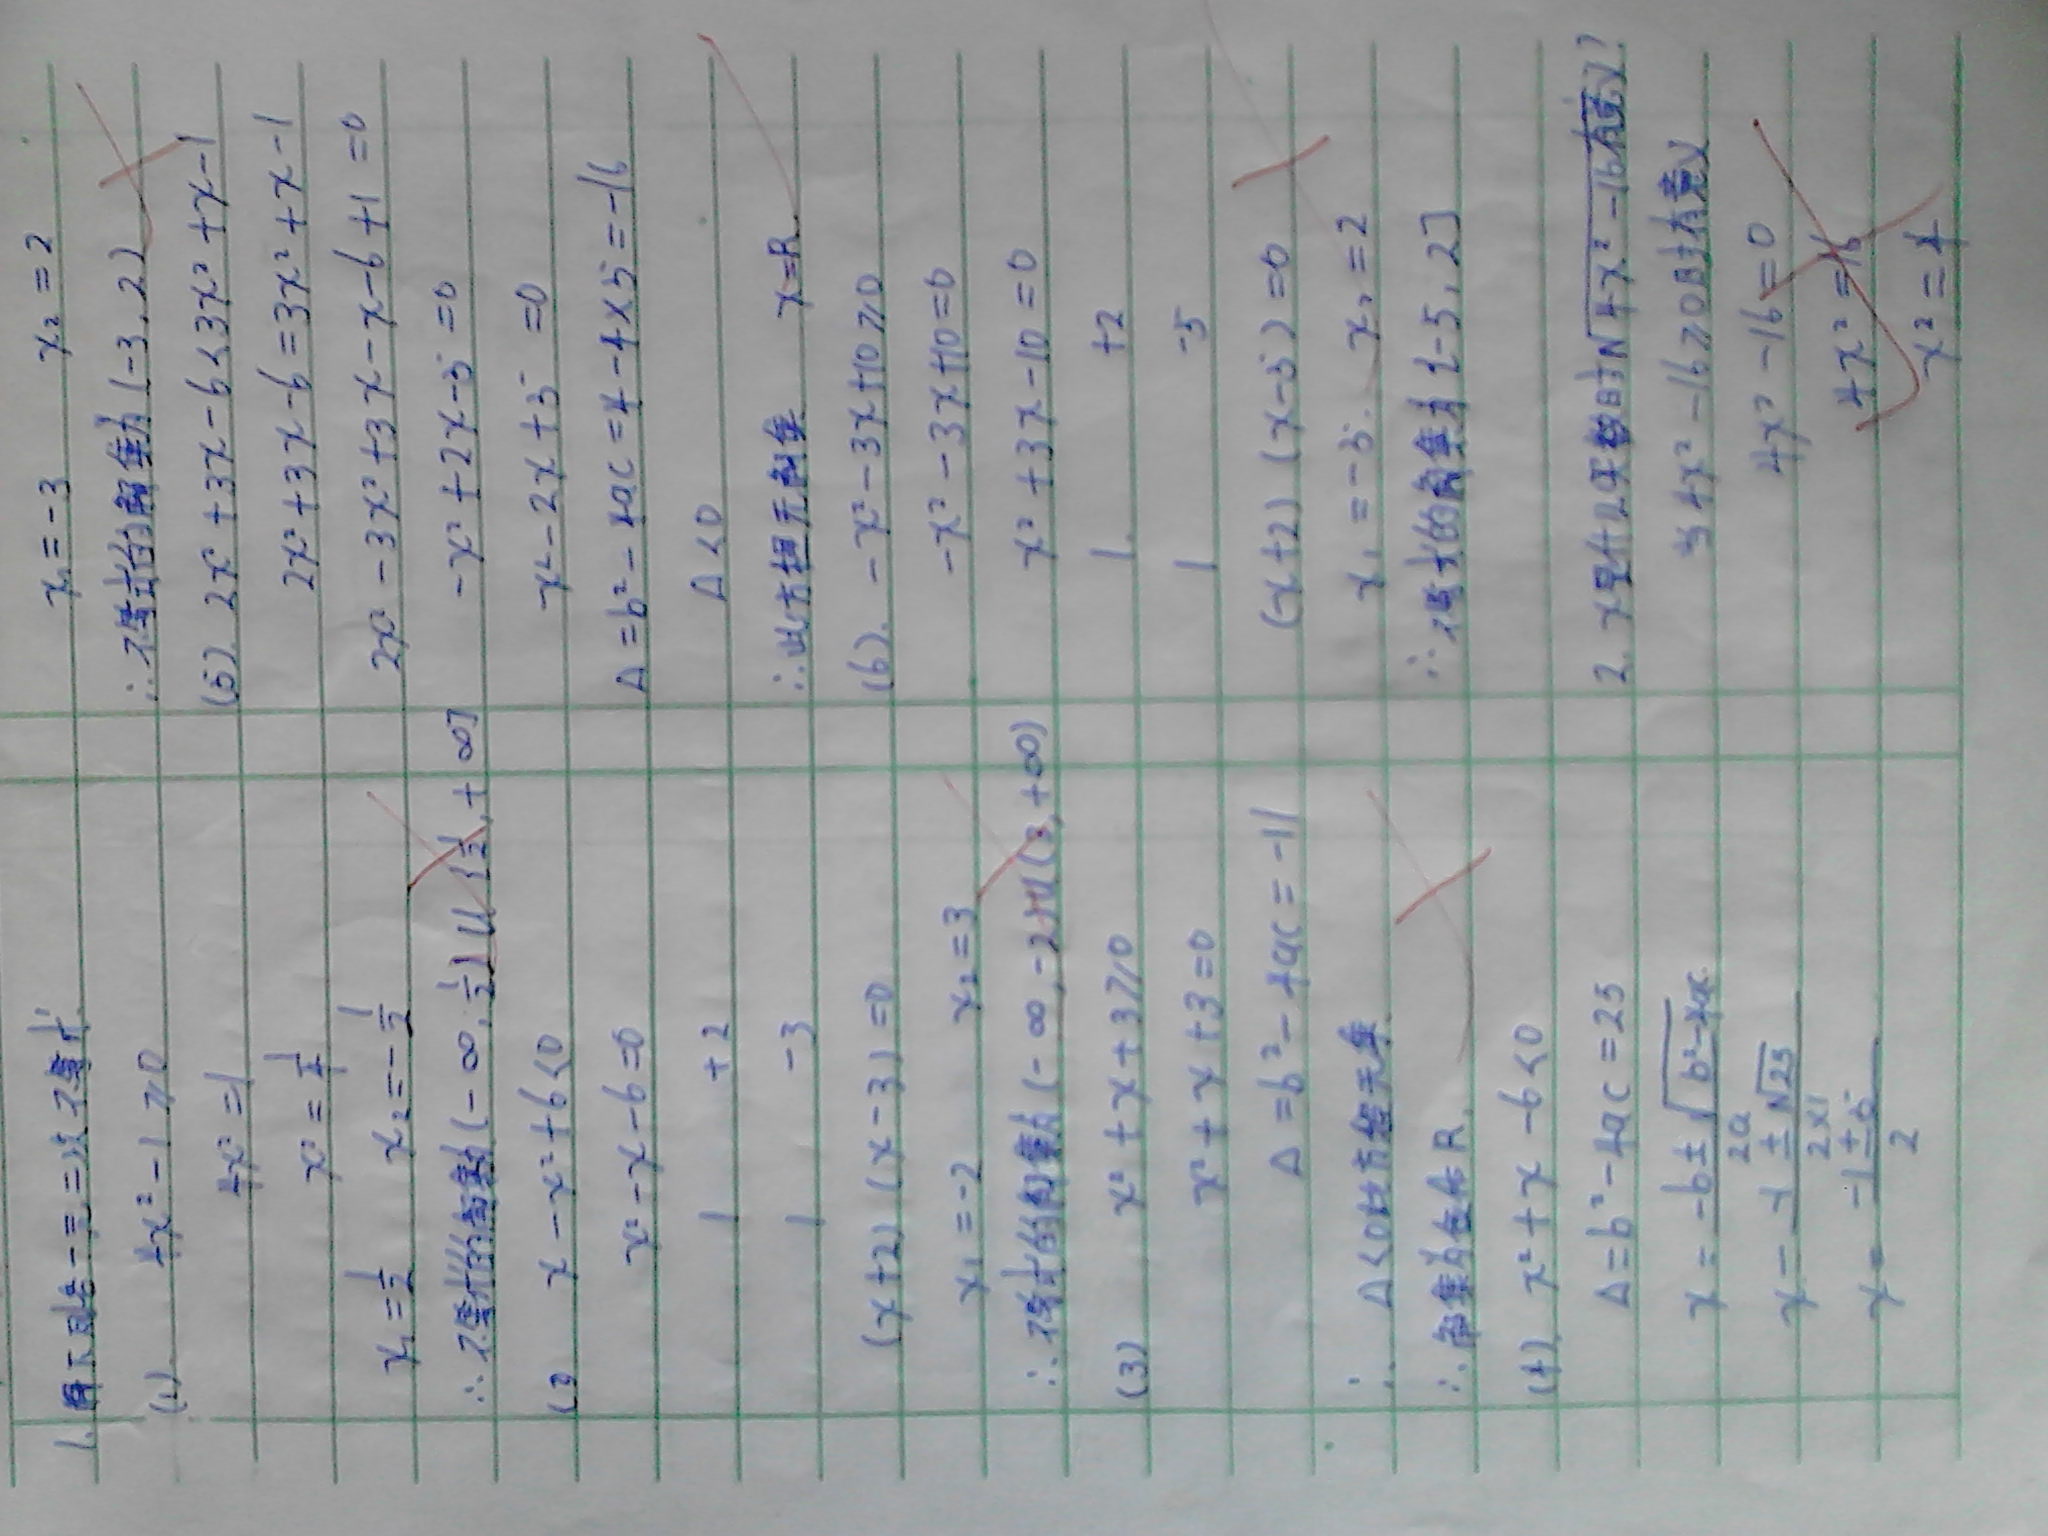 1. 解下列各一元二次不等式
(1). 4x² - 1 ≥ 0
4x² = 1
x² = 1/4
x₁ = 1/2   x₂ = - 1/2
∴ 不等式的解集为 (- ∞, 1/2) ∪ (1/2, + ∞]
(2) x - x² + 6 < 0
x² - x - 6 = 0
1   + 2
1   - 3
(x + 2) (x - 3) = 0
x₁ = - 2   x₂ = 3
∴ 不等式的解集为 (- ∞, - 2) ∪ (3, + ∞)
(3) x² + x + 3 ≥ 0
x² + x + 3 = 0
Δ = b² - 4ac = - 11
∴ Δ < 0 此方程无解
∴ 解集为 R.
(4). x² + x - 6 < 0
Δ = b² - 4ac = 25
x = (- b ± √(b² - 4ac)) / 2a
x = (- 1 ± √25) / 2×1
x = (- 1 ± 5) / 2
x₁ = - 3   x₂ = 2
∴ 不等式的解集为 (- 3, 2)
(5). 2x² + 3x - 6 < 3x² + x - 1
2x² + 3x - 6 = 3x² + x - 1
2x² - 3x² + 3x - x - 6 + 1 = 0
- x² + 2x - 5 = 0
x² - 2x + 5 = 0
Δ = b² - 4ac = 4 - 4×5 = - 16
Δ < 0
∴ 此方程无解集   x = R
(6). - x² - 3x + 10 ≥ 0
- x² - 3x + 10 = 0
x² + 3x - 10 = 0
1   + 2
1   - 5
(x + 2) (x - 5) = 0
x₁ = - 5.   x₂ = 2
∴ 不等式的解集为 [- 5, 2]
2. x是什么实数时√4x² - 16有意义?
当4x² - 16 ≥ 0时有意义
4x² - 16 = 0
4x² = 16
x² = 4